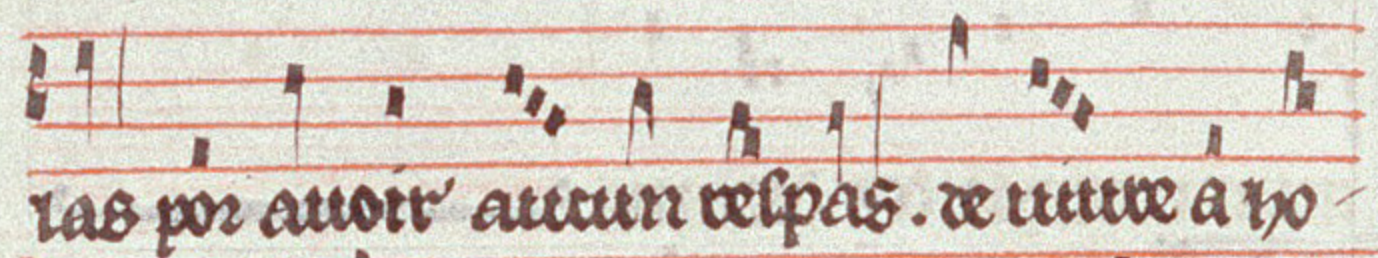 las por auoir aucun respas. de uiure a ho